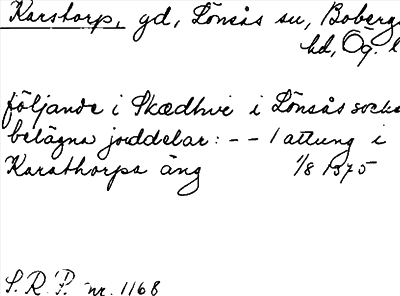 Karstorp, gd, Lönsås sn, Bobergs
hd, Ög. l
följande i Skædhwi i Lönsås socke
belägna jorddelar: -- 1 attung i
Karathorpa äng 1/8 1375
S.R.P. nr. 1168